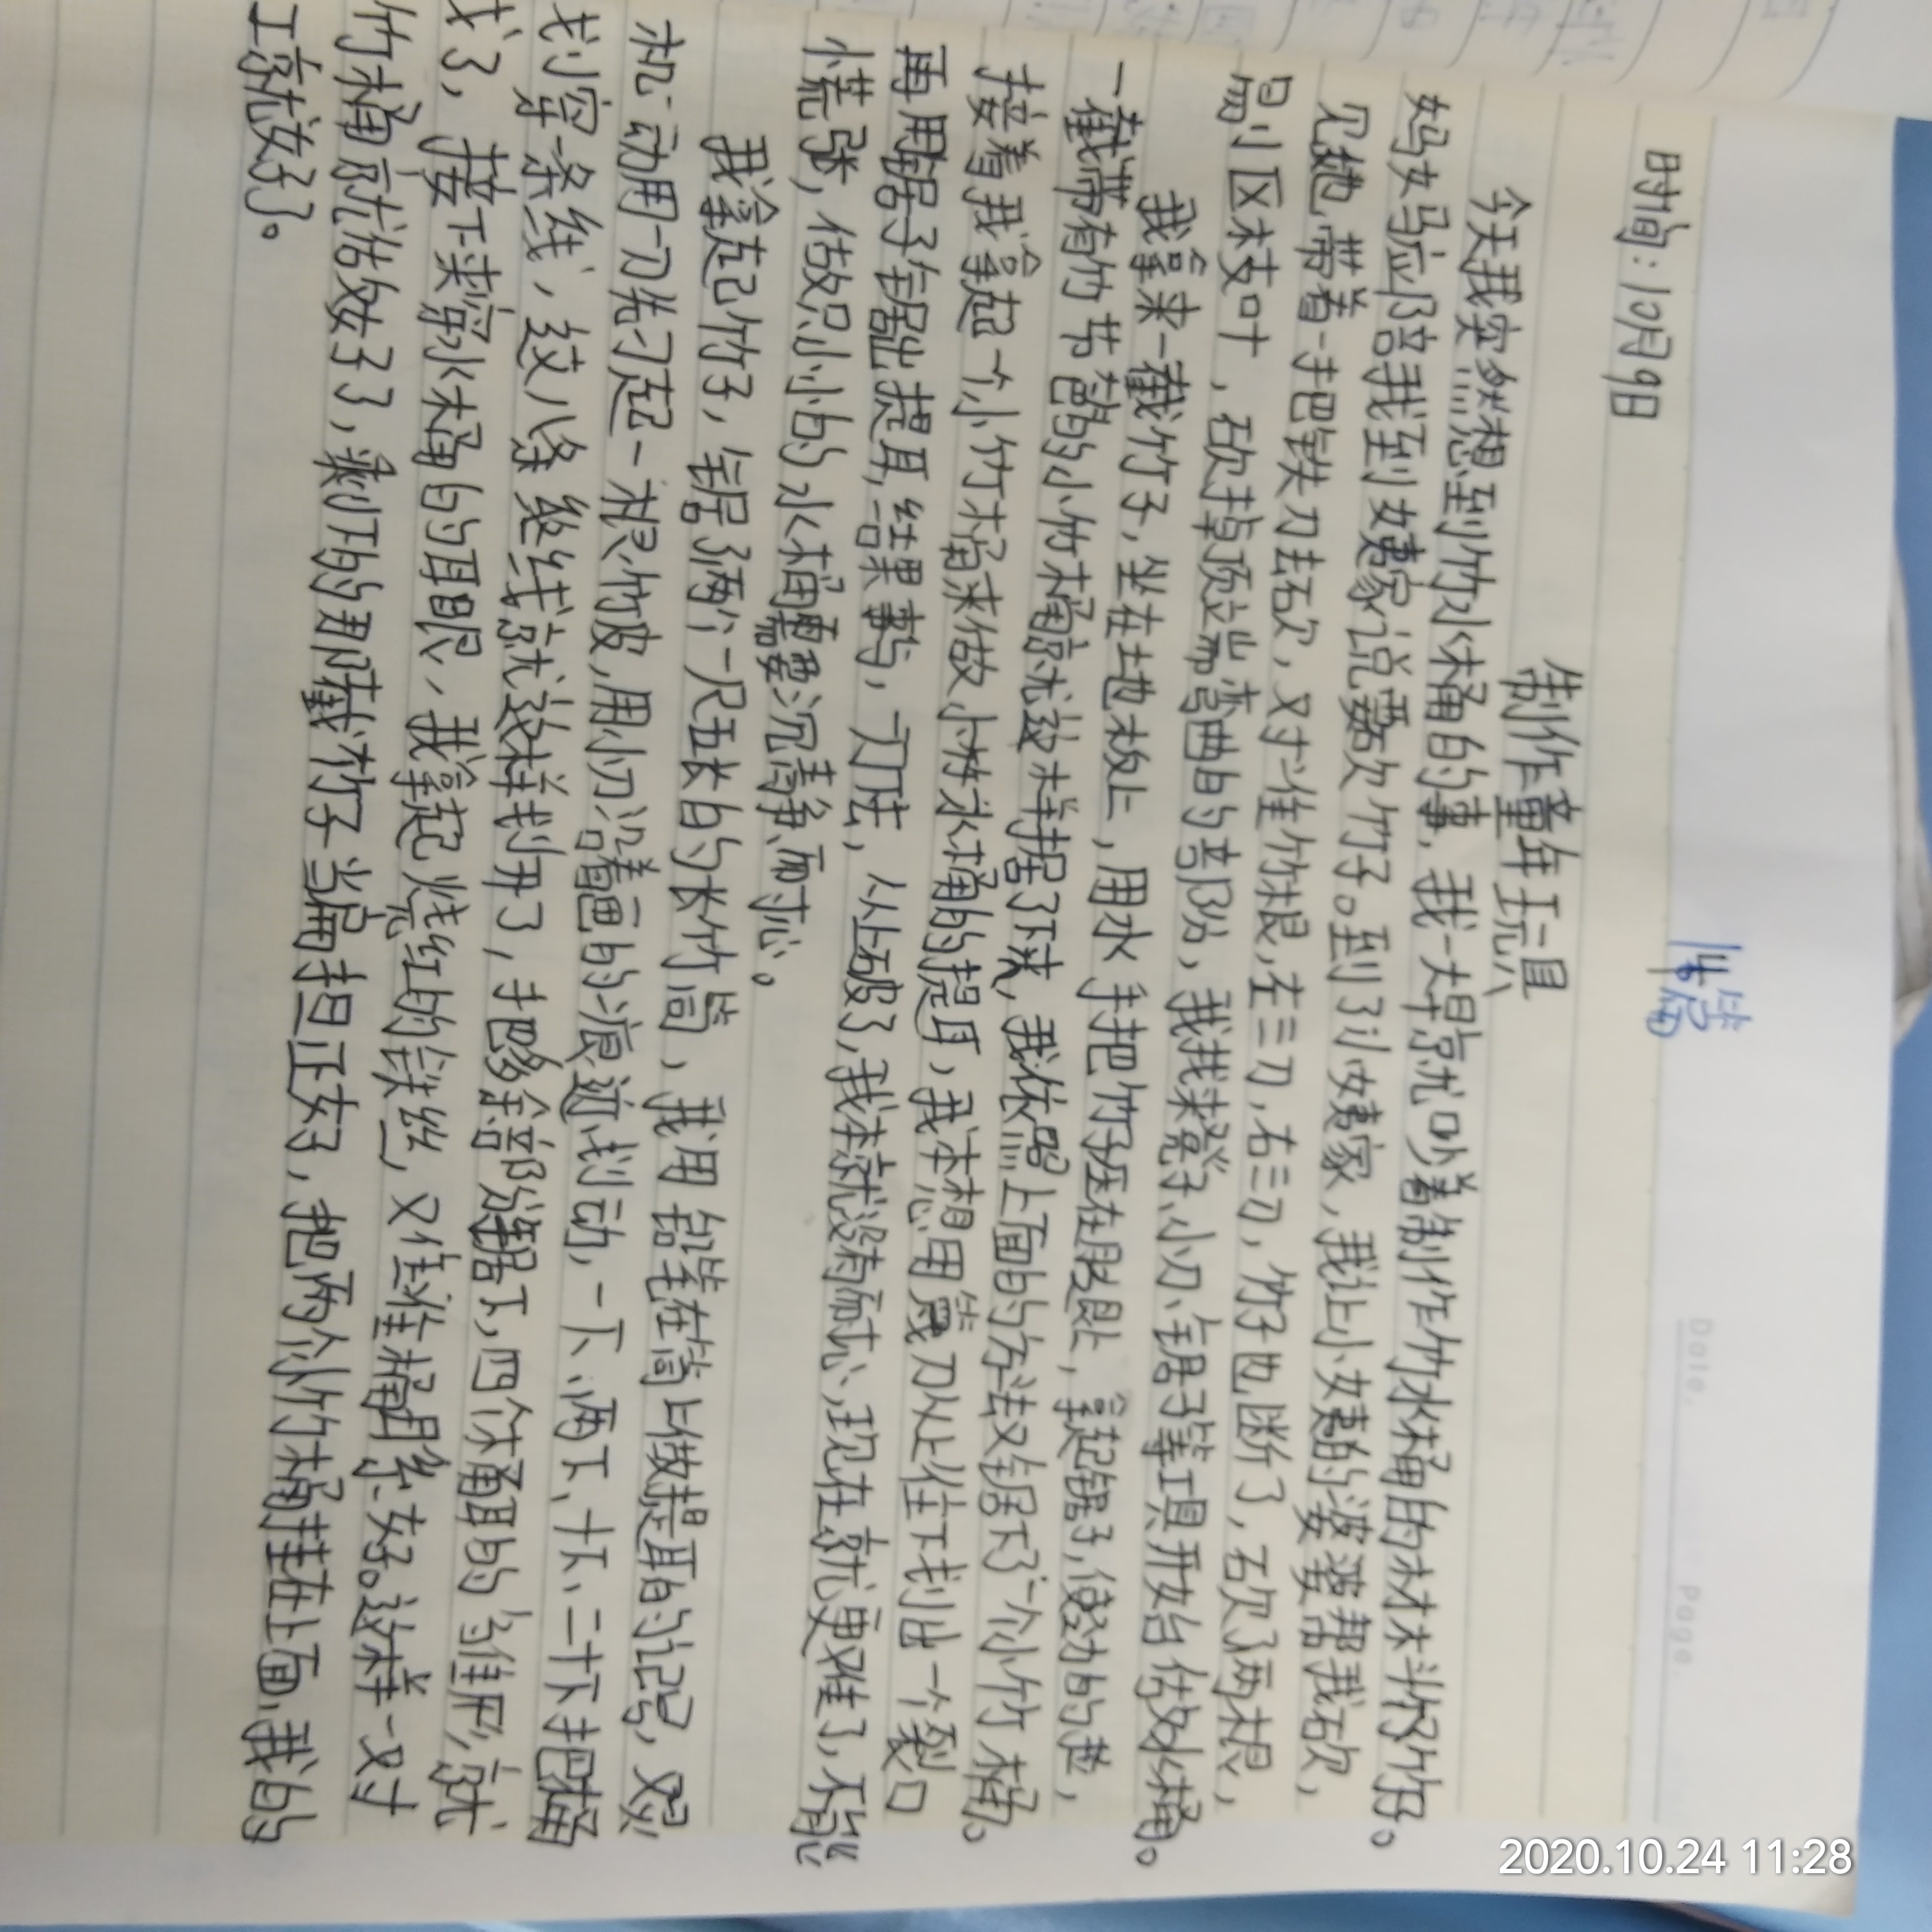 18篇
Date.
Page.
时间：10月9日
制作童年玩具
今天我突然想到竹水桶的事，我一大早就吵着制作竹水桶的材料竹子。
妈妈应陪我到姨家说要砍竹子。到了小姨家，我让小姨的婆婆帮我砍，
见她带着一把铁刀去砍，对准竹根，左三刀，右三刀，竹子也断了，砍了两根，
小区枝叶，砍掉顶端弯曲的部份，我找来凳子、小刀、锯子等工具开始做水桶。
我拿来一截竹子，坐在地板上，用水手把竹子压在腿上，拿起锯子，使劲的锯，
一截带有竹节的小竹桶就这样锯了下来，我依照上面的方法又锯下了一个小竹桶。
接着我拿起一个小竹桶来做小竹水桶的提耳，我本想用篾刀从上往下划出一个裂口
再用锯子锯出提耳，结果事与，方法，从上破了，我本就没有耐心，现在就更难了，不能
慌张，做只小小的水桶需要沉静、耐心。
我拿起竹子，锯了两个一尺五长的长竹筒，我用铅笔在筒上做提耳的记号，又
动用刀先刁起一根竹皮，用小刀沿着画的痕迹划动，一下、两下、十下、二十下把桶
划穿一条线，这八条线就这样划开了，把多余部分锯下，四个桶耳的雏形就
成了，接下来穿水桶的耳眼，我拿起烧红的铁丝，对准桶耳系好。这样一对
竹桶就做好了，剩下的那截竹子当扁担正好，把两个小竹桶挂在上面，我的
工就好了。
2020.10.24 11:28